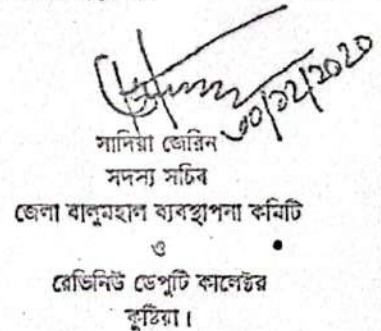 ৩০/১২/২০২০
সাদিয়া জেরিন
সদস্য সচিব
জেলা বালুমহাল ব্যবস্থাপনা কমিটি
ও
রেভিনিউ ডেপুটি কালেক্টর
কুষ্টিয়া।